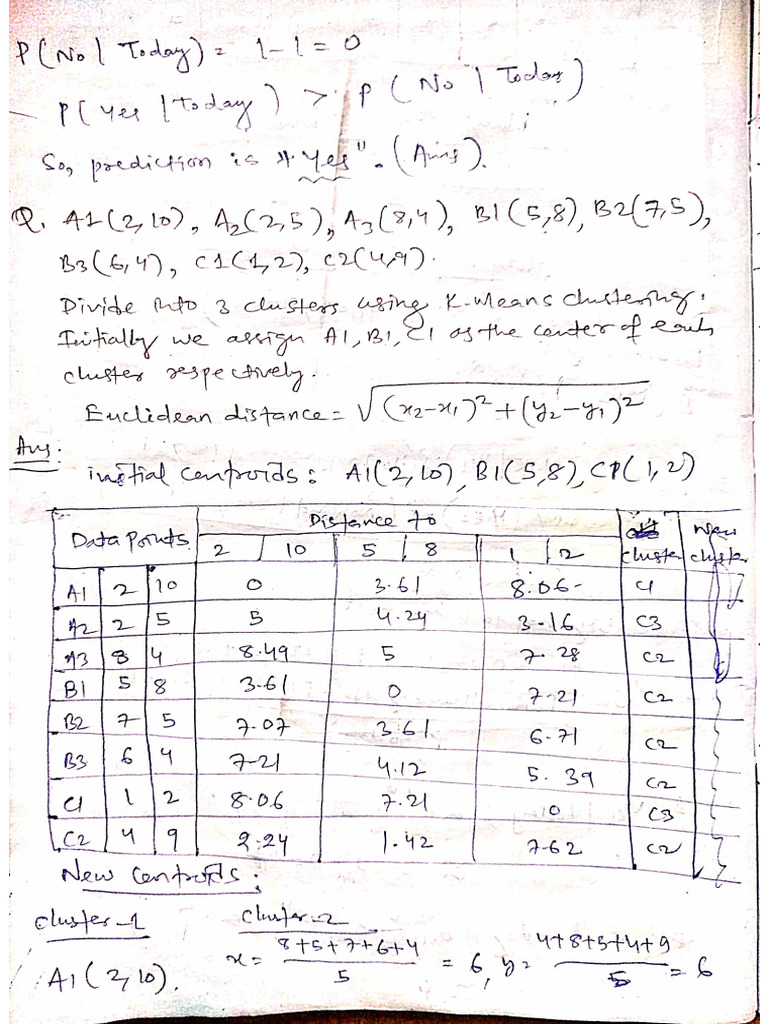 P(No | Today) = 1-1 = 0
P(Yes | Today) > P(No | Today)
So, prediction is "Yes". (Ans).
Q. A1(2,10), A2(2,5), A3(8,4), B1(5,8), B2(7,5),
B3(6,4), C1(1,2), C2(4,9).
Divide into 3 clusters using K-Means clustering.
Initially we assign A1, B1, C1 as the center of each
cluster respectively.
Euclidean distance = √(x2-x1)²+(y2-y1)²
Ans:
initial centroids: A1(2,10), B1(5,8), C1(1,2)
Data Points | Distance to | cluster | New cluster
2 | 10 | 5 | 8 | 1 | 2
A1 | 2 | 10 | 0 | 3.61 | 8.06 | C1
A2 | 2 | 5 | 5 | 4.24 | 3.16 | C3
A3 | 8 | 4 | 8.49 | 5 | 7.28 | C2
B1 | 5 | 8 | 3.61 | 0 | 7.21 | C2
B2 | 7 | 5 | 7.07 | 3.61 | 6.71 | C2
B3 | 6 | 4 | 7.21 | 4.12 | 5.39 | C2
C1 | 1 | 2 | 8.06 | 7.21 | 0 | C3
C2 | 4 | 9 | 2.24 | 1.42 | 7.62 | C2
New Centroids:
cluster-1 cluster-2
A1(2,10). x = 8+5+7+6+4 / 5 = 6, y = 4+8+5+4+9 / 5 = 6